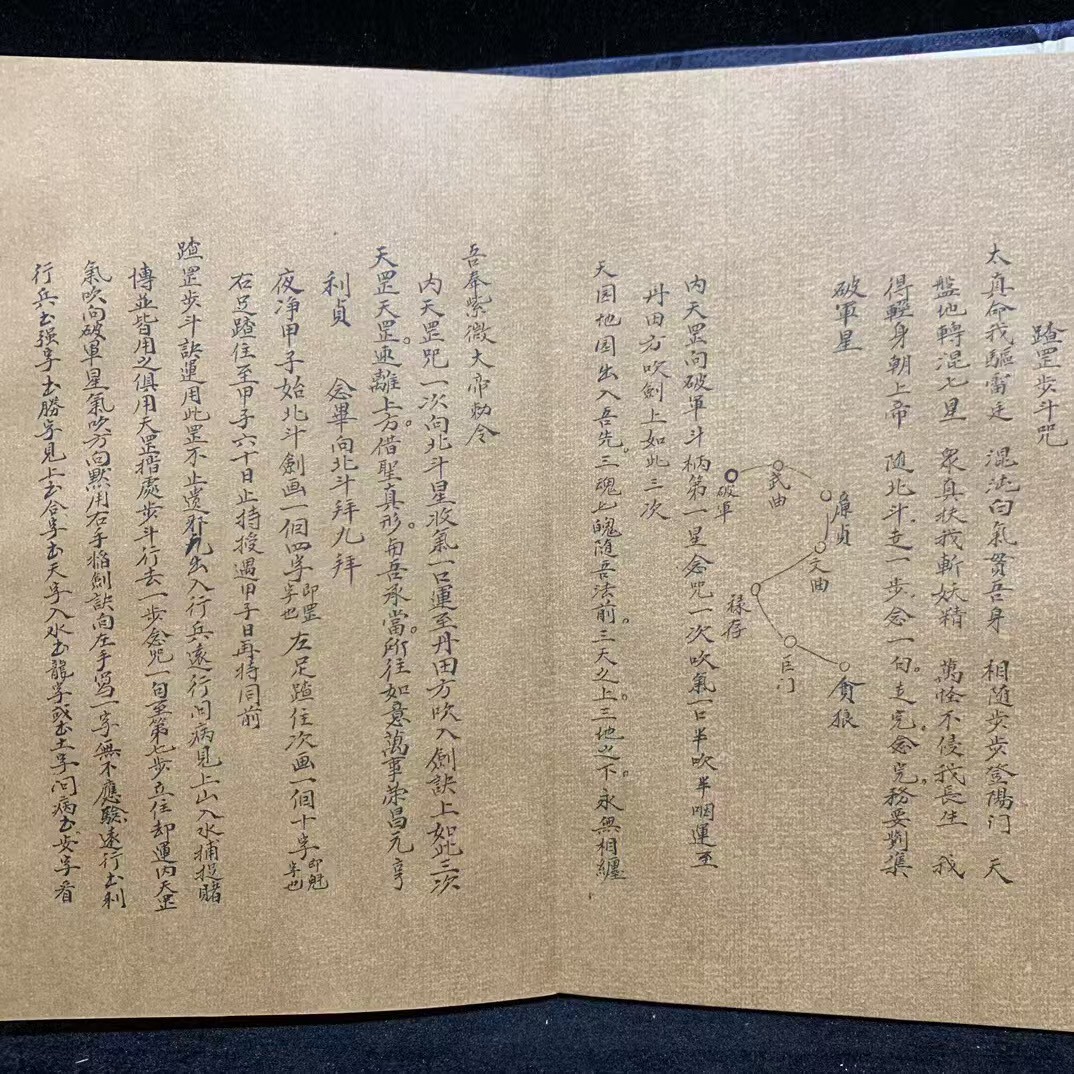 踏罡步斗咒
太真命我驅雷廷 混沌白氣貫吾身 相随步步登陽门 天
盤地轉混七星 衆真扶我斬妖精 萬怪不侵我長生 我
得輕身朝上帝 随北斗走一步念一句。走完念完。務要剪集
破軍星
武曲
破軍
廉貞
文曲
禄存
巨门
貪狼
内天罡向破軍斗柄第一星念咒一次吹氣一口半吹半咽運至
丹田方吹劍上如此三次
天囯地囯出入吾先。三魂七魄随吾法前。三天之上三地之下。永無相纏
吾奉紫微大帝勅令
内天罡咒一次向北斗星收氣一口運至丹田方吹入劍訣上如此三次
天罡天罡。速離上方。借聖真形。每吾承當。所往如意萬事榮昌元亨
利貞 念畢向北斗拜九拜
夜净甲子始北斗劍画一個四字即罡字也左足踏住次画一個十字即魁字也
右足踏住至甲子六十日止持授遇甲子日再持同前
踏罡步斗訣運用此罡不止遺 凡出入行兵遠行问病見上山入水捕捉賭
博並皆用之俱用天罡指處步斗行去一步念咒一句至第七步立住却運内天罡
氣吹向破軍星氣吹方向黙用右手掐劍訣向左手寫一字無不應驗遠行书利
行兵书强字书勝字見上书合字书天字入水书龍字或书土字问病书安字看